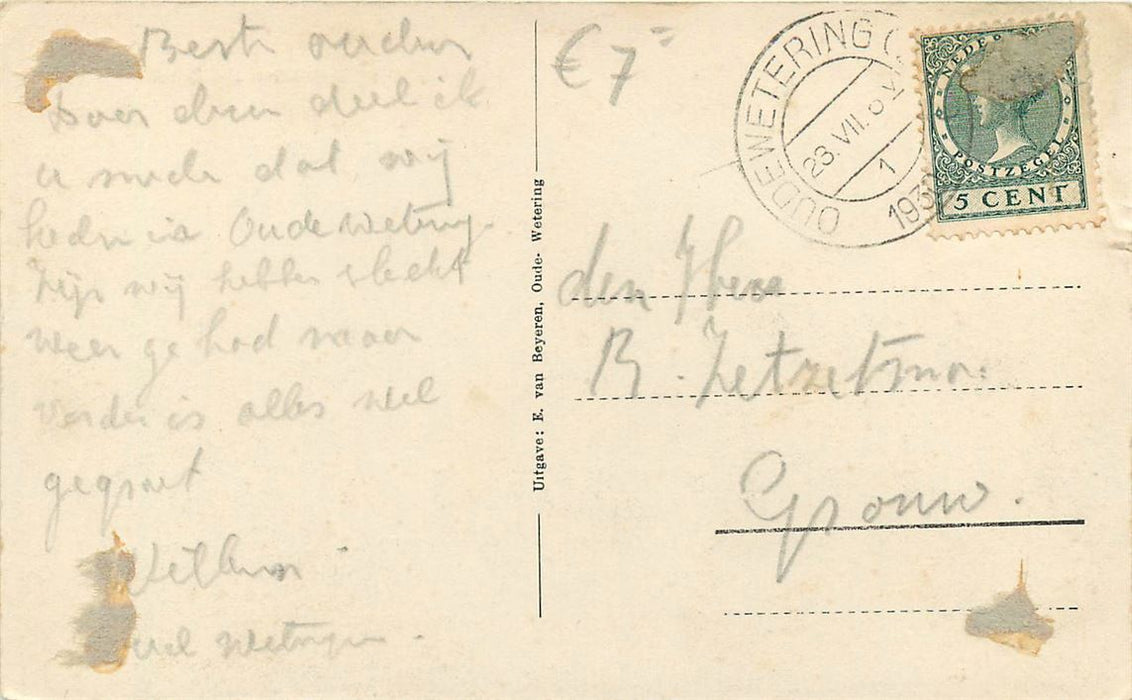 Beste ouders
Door deze deel ik
u mede dat wij
heden in Oude Wetering
Zijn wij hebben slecht
weer gehad maar
verder is alles wel
gegroet

Oude Wetering.
Uitgave: E. van Beyeren, Oude-Wetering
€ 7=
OUDEWETERING (
28.VII.
1
193
NEDER
POSTZEGEL
5 CENT
den Heer
R.
Grouw.